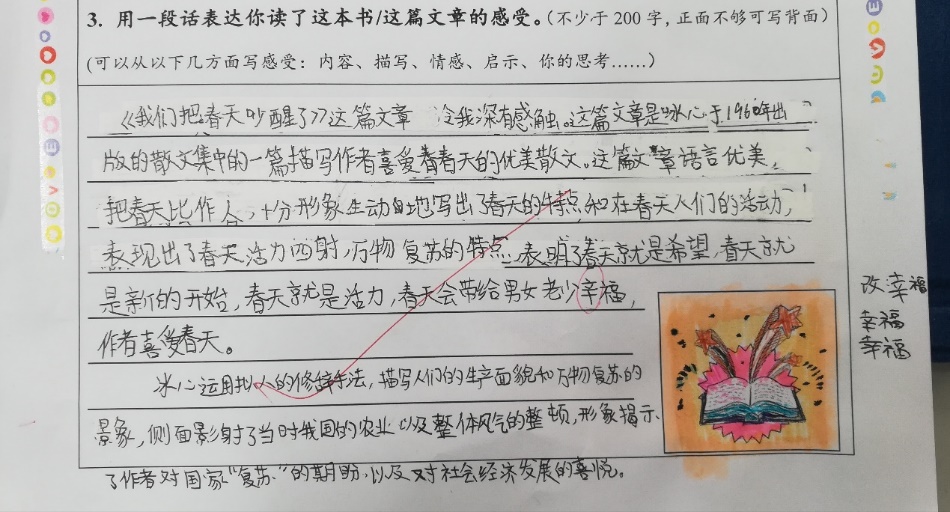 3. 用一段话表达你读了这本书/这篇文章的感受。(不少于 200 字, 正面不够可写背面)
(可以从以下几方面写感受: 内容、描写、情感、启示、你的思考……)
《我们把春天吵醒了》这篇文章 令我深有感触。这篇文章是冰心于1960年出
版的散文集中的一篇描写作者喜爱春天的优美散文。这篇文章语言优美,
把春天比作人,十分形象生动地写出了春天的特点和在春天人们的活动,
表现出了春天活力四射,万物复苏的特点,表明了春天就是希望,春天就
是新的开始,春天就是活力,春天会带给男女老少幸福,
作者喜爱春天。
冰心运用拟人的修辞手法,描写人们的生产面貌和万物复苏的
景象,侧面影射了当时我国的农业以及整体风气的整顿,形象揭示
了作者对国家“复苏”的期盼,以及对社会经济发展的喜悦。
改:幸福
幸福
幸福